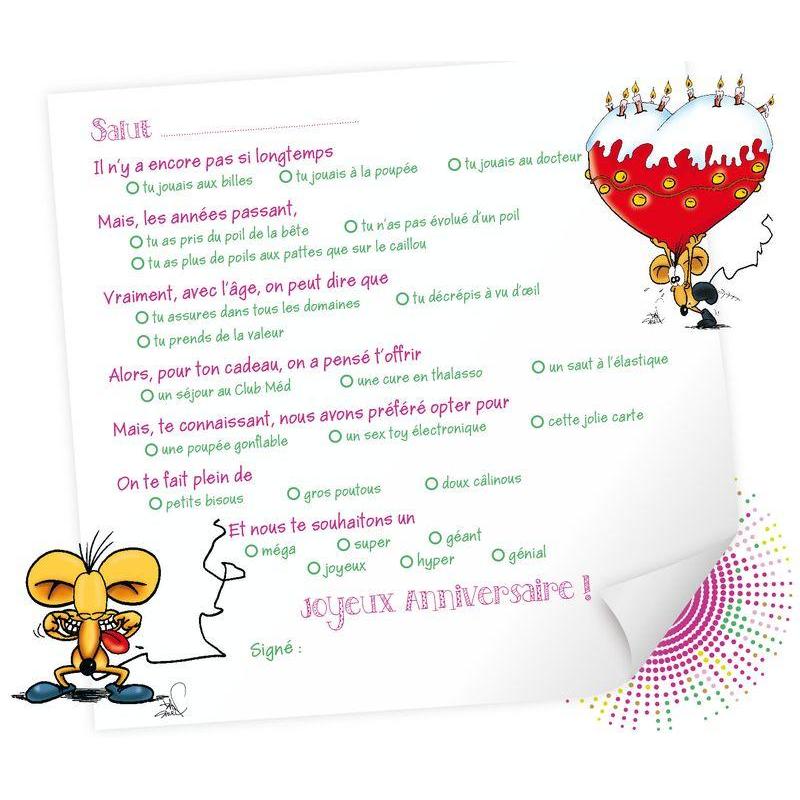 Salut ..............................
Il n'y a encore pas si longtemps
tu jouais aux billes tu jouais à la poupée tu jouais au docteur
Mais, les années passant,
tu as pris du poil de la bête tu n'as pas évolué d'un poil
tu as plus de poils aux pattes que sur le caillou
Vraiment, avec l'âge, on peut dire que
tu assures dans tous les domaines tu décrépis à vu d'œil
tu prends de la valeur
Alors, pour ton cadeau, on a pensé t'offrir
un séjour au Club Méd une cure en thalasso un saut à l'élastique
Mais, te connaissant, nous avons préféré opter pour
une poupée gonflable un sex toy électronique cette jolie carte
On te fait plein de
petits bisous gros poutous doux câlinous
Et nous te souhaitons un
méga super géant
joyeux hyper génial
Joyeux Anniversaire !
Signé :